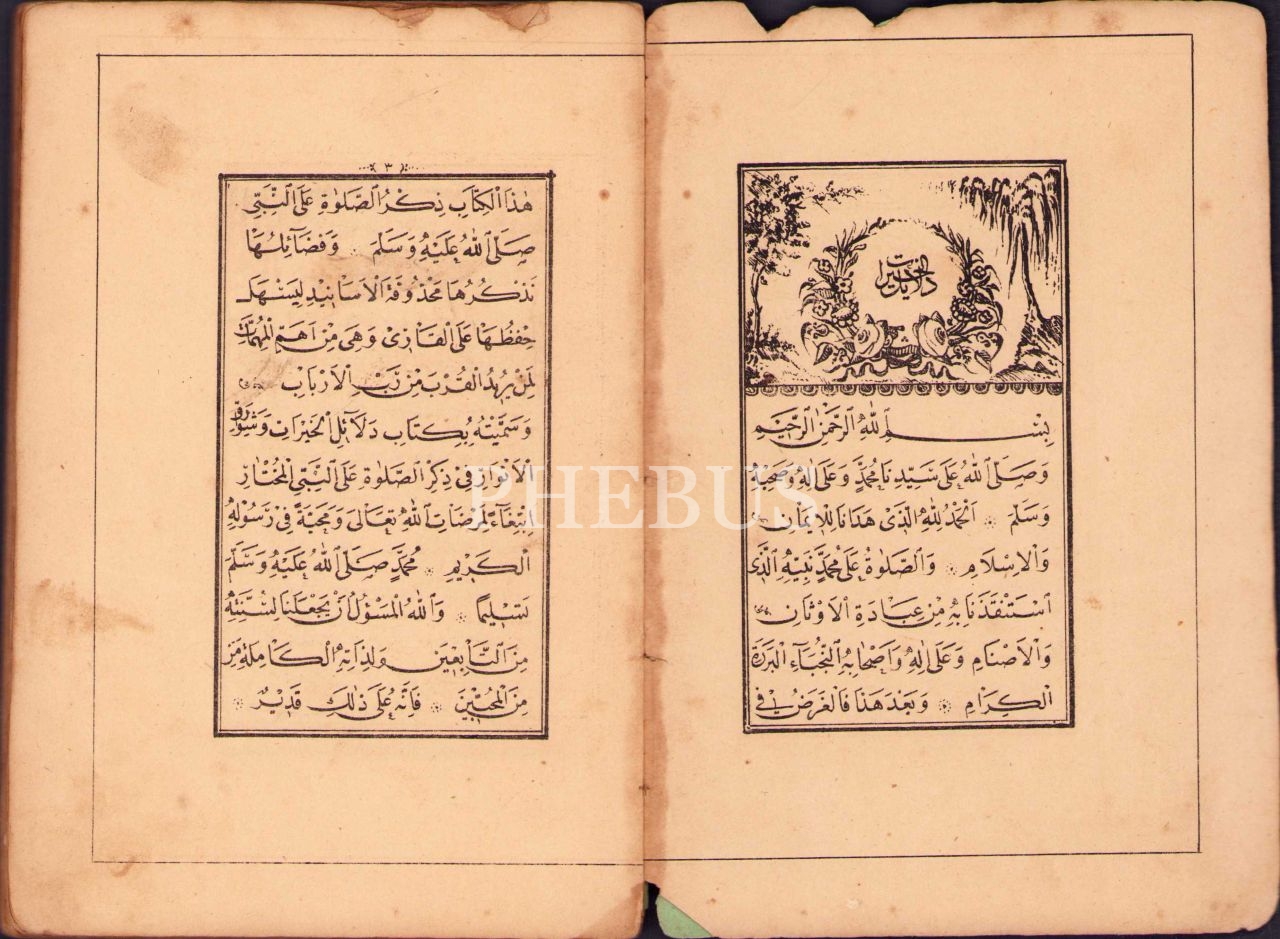 دلائل الخيرات
بِسْمِ اللّٰهِ الرَّحْمٰنِ الرَّحٖيمِ
وَصَلَّى اللّٰهُ عَلٰى سَيِّدِنَا مُحَمَّدٍ وَعَلٰى اٰلِهٖ وَصَحْبِهٖ
وَسَلَّمَ ۞ اَلْحَمْدُ لِلّٰهِ الَّذٖى هَدَانَا لِلْاٖيمَانِ
وَالْاِسْلَامِ ۞ وَالصَّلٰوةُ عَلٰى مُحَمَّدٍ نَبِيِّهِ الَّذٖى
اسْتَنْقَذَنَا بِهٖ مِنْ عِبَادَةِ الْاَوْثَانِ
وَالْاَصْنَامِ وَعَلٰى اٰلِهٖ وَاَصْحَابِهِ النُّجَبَاءِ الْبَرَرَةِ
الْكِرَامِ ۞ وَبَعْدَ هٰذَا فَالْغَرَضُ فٖى
٣
هٰذَا الْكِتَابِ ذِكْرُ الصَّلٰوةِ عَلَى النَّبِىِّ
صَلَّى اللّٰهُ عَلَيْهِ وَسَلَّمَ وَفَضَآئِلُهَا
نَذْكُرُهَا مَحْذُوفَةَ الْاَسَانٖيدِ لِيَسْهَلَ
حِفْظُهَا عَلَى الْقَارِئِ وَهِىَ مِنْ اَهَمِّ الْمُهِمَّاتِ
لِمَنْ يُرٖيدُ الْقُرْبَ مِنْ رَبِّ الْاَرْبَابِ
وَسَمَّيْتُهُ بِكِتَابِ دَلَآئِلِ الْخَيْرَاتِ وَشَوَارِقِ
الْاَنْوَارِ فٖى ذِكْرِ الصَّلٰوةِ عَلَى النَّبِىِّ الْمُخْتَارِ
اِبْتِغَآءً لِمَرْضَاتِ اللّٰهِ تَعَالٰى وَمَحَبَّةً فٖى رَسُولِهِ
الْكَرٖيمِ ۞ مُحَمَّدٍ صَلَّى اللّٰهُ عَلَيْهِ وَسَلَّمَ
تَسْلٖيمًا ۞ وَاللّٰهُ الْمَسْؤُلُ اَنْ يَجْعَلَنَا لِسُنَّتِهٖ
مِنَ التَّابِعٖينَ وَلِذَاتِهِ الْكَامِلَةِ
مِنَ الْمُحِبّٖينَ ۞ فَاِنَّهُ عَلٰى ذٰلِكَ قَدٖيرٌ ۞
PHEBUS